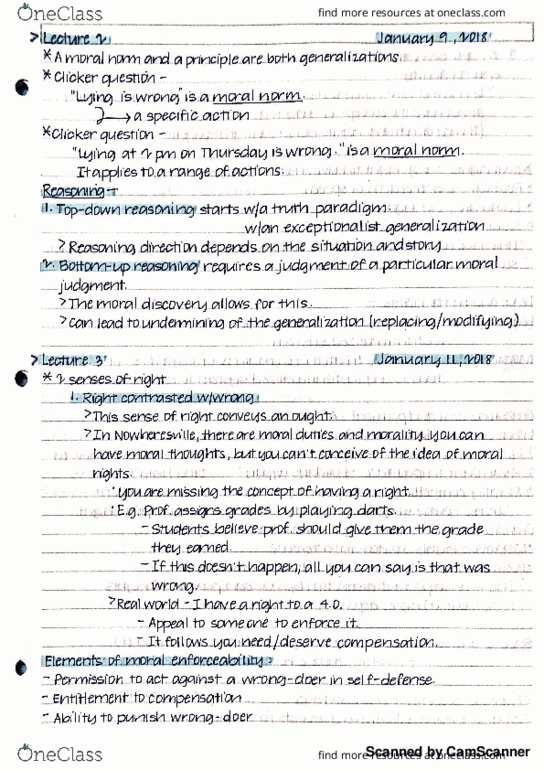 OneClass
find more resources at oneclass.com
> Lecture 2 January 9, 2018
* A moral norm and a principle are both generalizations.
* Clicker question -
"Lying is wrong" is a moral norm.
→ a specific action
* Clicker question -
"Lying at 2 pm on Thursday is wrong." is a moral norm.
It applies to a range of actions.
Reasoning -
1. Top-down reasoning starts w/a truth paradigm.
w/an exceptionalist generalization
> Reasoning direction depends on the situation and story
2. Bottom-up reasoning requires a judgment of a particular moral
judgment.
> The moral discovery allows for this.
> Can lead to undermining of the generalization (replacing/modifying)
> Lecture 3 January 11, 2018
* 2 senses of right
1. Right contrasted w/wrong.
> This sense of right conveys an ought.
> In Nowheresville, there are moral duties and morality. You can
have moral thoughts, but you can't conceive of the idea of moral
rights.
· You are missing the concept of having a right.
· E.g. Prof. assigns grades by playing darts.
- Students believe prof. should give them the grade
they earned.
- If this doesn't happen, all you can say is that was
wrong.
> Real world - I have a right to a 4.0.
- Appeal to someone to enforce it.
- It follows you need/deserve compensation.
Elements of moral enforceability:
- Permission to act against a wrong-doer in self-defense
- Entitlement to compensation
- Ability to punish wrong-doer
OneClass
find more resources at oneclass.com
Scanned by CamScanner